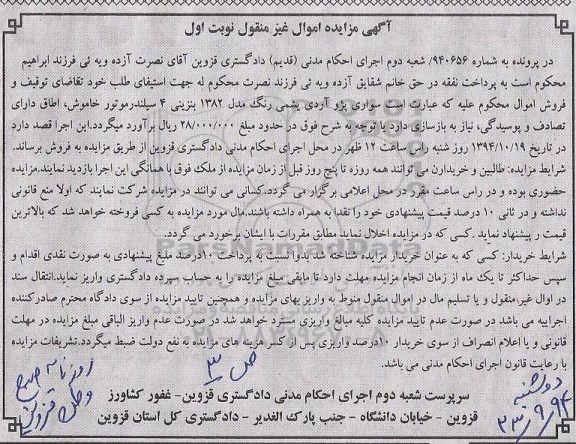 آگهی مزایده اموال غیر منقول نوبت اول
در پرونده به شماره ۹۴۰۶۵۶/ شعبه دوم اجرای احکام مدنی (قدیم) دادگستری قزوین آقای نصرت آزده ویه ئی فرزند ابراهیم
محکوم است به پرداخت نفقه در حق خانم شقایق آزده ویه ئی فرزند نصرت محکوم له جهت استیفای طلب خود تقاضای توقیف و
فروش اموال محکوم علیه که عبارت است سواری پژو آردی یشمی رنگ مدل ۱۳۸۲ بنزینی ۴ سیلندرموتور خاموش، اطاق دارای
تصادف و پوسیدگی، نیاز به بازسازی دارد با توجه به شرح فوق در حدود مبلغ ۲۸/۰۰۰/۰۰۰ ریال برآورد میگردد.این اجرا قصد دارد
در تاریخ ۱۳۹۴/۱۰/۱۹ روز شنبه راس ساعت ۱۲ ظهر در محل اجرای احکام مدنی دادگستری قزوین از طریق مزایده به فروش برساند.
شرایط مزایده: طالبین و خریدارن می توانند همه روزه تا پنج روز قبل از زمان مزایده از ملک فوق با همانگی این اجرا بازدید نمایند.مزایده
حضوری بوده و در راس ساعت مقرر در محل اعلامی برگزار می گردد.کسانی می توانند در مزایده شرکت نمایند که اولا منع قانونی
نداشته و در ثانی ۱۰ درصد قیمت پیشنهادی خود را نقدا به همراه داشته باشند.مال مورد مزایده به کسی فروخته خواهد شد که بالاترین
قیمت ر پیشنهاد نماید .کسی که در مزایده اخلال نماید مطابق مقررات با ایشان برخورد می گردد.
شرایط خریدار: کسی که به عنوان خریدار مزایده شناخته شد بدوا نسبت به پرداخت ۱۰درصد مبلغ پیشنهادی به صورت نقدی اقدام و
سپس حداکثر تا یک ماه از زمان انجام مزایده مهلت دارد تا مابقی مبلغ مزایده را به حساب سپرده دادگستری واریز نماید.انتقال سند
در اوال غیر،منقول و یا تسلیم مال در اموال منقول منوط به واریز بهای مزایده و همچنین تایید مزایده از سوی دادگاه محترم صادرکننده
اجراییه می باشد در صورت عدم تایید مزایده کلیه مبالغ واریزی مسترد خواهد شد در صورت عدم واریز الباقی مبلغ مزایده در مهلت
قانونی و یا اعلام انصراف از سوی خریدار ۱۰درصد واریزی پس از کسر هزینه های مزایده به نفع دولت ضبط میگردد.تشریفات مزایده
با رعایت قانون اجرای احکام مدنی می باشد.
سرپرست شعبه دوم اجرای احکام مدنی دادگستری قزوین- غفور کشاورز
قزوین - خیابان دانشگاه - جنب پارک الغدیر - دادگستری کل استان قزوین
ParsNamadData
ص ۳
روزنامه صبح
قزوین
دوشنبه
۲۳/۹/۹۴